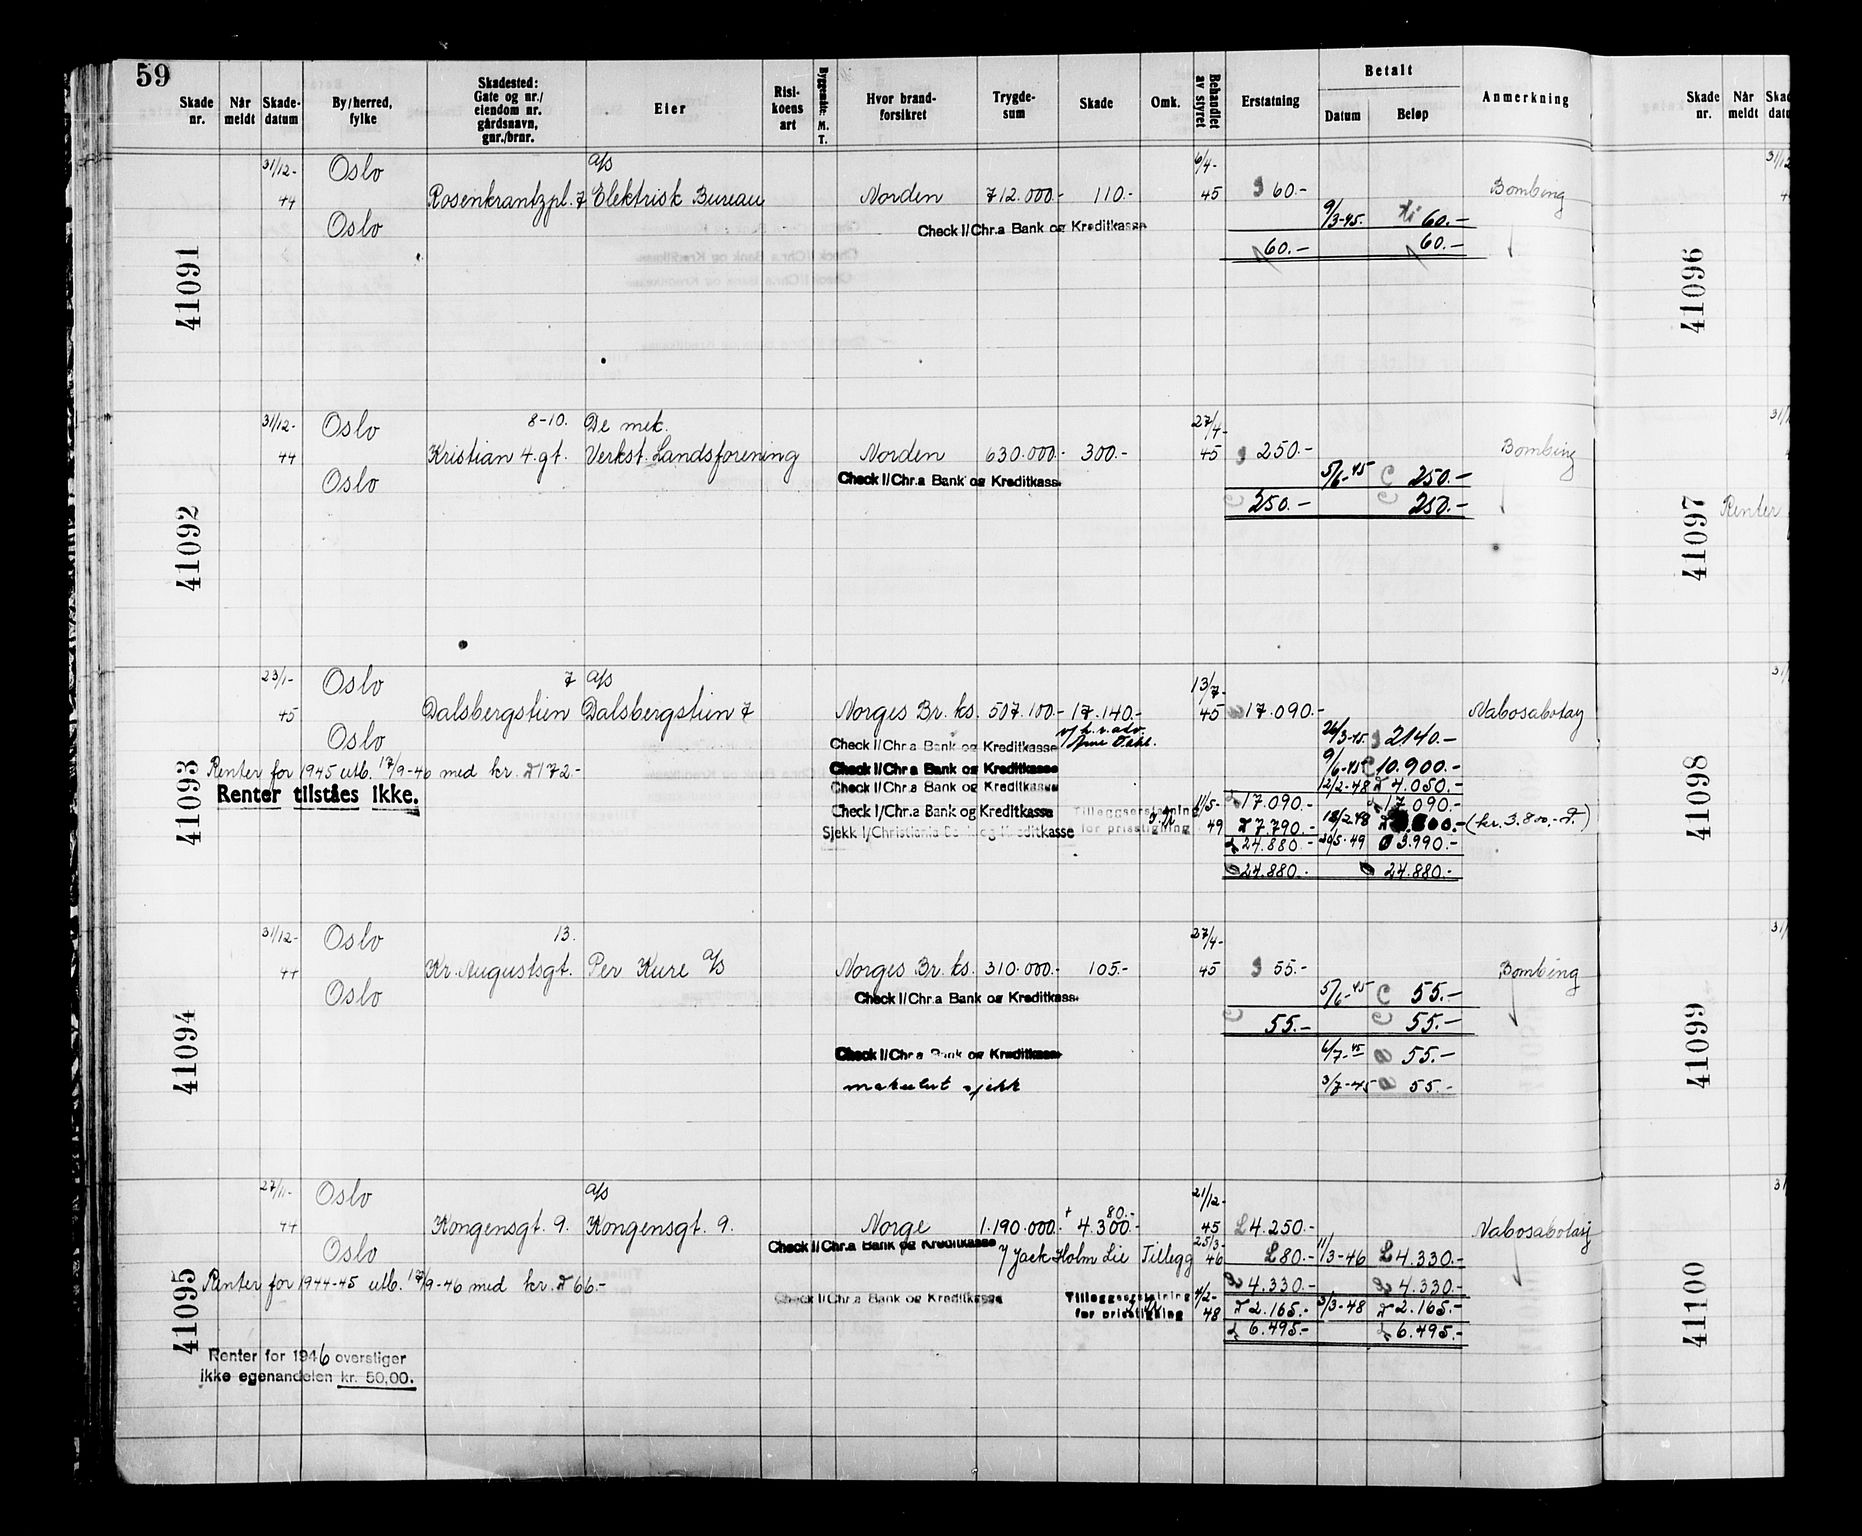 59
Skade nr.
Når meldt
Skade-datum
By/herred, fylke
Skadested: Gate og nr./ eiendom nr. gårdsnavn, gnr./brnr.
Eier
Risi-koens art
Byggemåte M. T.
Hvor brand-forsikret
Trygde-sum
Skade
Omk.
Behandlet av styret
Erstatning
Betalt
Datum
Beløp
Anmerkning
Skade nr.
Når meldt
31/12- Oslo A/S 6/4-
44 Rosenkrantzpl. 7 Elektrisk Bureau Norden 712.000.- 110.- 45 60.- Bombing
Oslo Check I/Chr.a Bank og Kreditkasse 9/3-45. 60.-
60.- 60.-
41091
41096
31/12- Oslo 8-10. De mek. 27/4-
44 Kristian 4.gt. Verkst. Landsforening Norden 630.000.- 300.- 45 250.- Bombing
Oslo Check I/Chr.a Bank og Kreditkasse 5/6-45 250.-
250.- 250.-
41092
41097 Renter
23/1- Oslo 7 A/S 13/7-
45 Dalsbergstien Dalsbergstien 7 Norges Br. ks. 507.100.- 17.140.- 45 17.090.- Nabosabotasj
Oslo Check I/Chr.a Bank og Kreditkasse 26/3-45. 2140.-
Renter for 1945 utb. 17/9-46 med kr. 172.- Check I/Chr.a Bank og Kreditkasse 9/6-45 10.900.-
Renter tilståes ikke. Check I/Chr.a Bank og Kreditkasse 12/2-48 4.050.-
Check I/Chr.a Bank og Kreditkasse Tilleggserstatning 11/5- 17.090.- 17.090.-
Sjekk I/Christiania Bank og Kreditkasse for prisstigning 49 7.790.- 12/2-48 (kr. 3.800.-)
24.880.- 30/5-49 3.990.-
24.880.- 24.880.-
41093
41098
31/12- Oslo 13. 27/4-
44 Kr. Augustsgt. Per Kure A/S Norges Br. ks. 310.000.- 105.- 45 55.- Bombing
Oslo Check I/Chr.a Bank og Kreditkasse 5/6-45 55.-
55.- 55.-
Check I/Chr.a Bank og Kreditkasse 6/7-45 55.-
makulert sjekk 3/7-45 55.-
41094
41099
27/11- Oslo A/S 21/12-
80.-
44 Kongensgt. 9. Kongensgt. 9. Norge 1.190.000.- + 4.300.- 45 4.250.- Nabosabotasj
Oslo Check I/Chr.a Bank og Kreditkasse v/ Jack Holm Lie Tillegg 25/3-46 80.- 11/3-46 4.330.-
Renter for 1944-45 utb. 17/9-46 med kr. 66.- 4.330.- 4.330.-
Check I/Chr.a Bank og Kreditkasse Tilleggserstatning for prisstigning 4/2-48 2.165.- 3/3-48 2.165.-
6.495.- 6.495.-
41095
41100
Renter for 1946 overstiger
ikke egenandelen kr. 50,00.